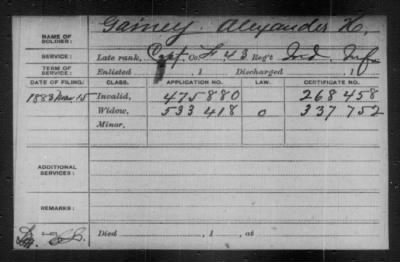 NAME OF SOLDIER: Gainey, Alexander H.
SERVICE: Late rank, Capt. Co. F, 43 Reg't Ind. Inf.
TERM OF SERVICE: Enlisted , 1 Discharged , 1
DATE OF FILING. CLASS. APPLICATION NO. LAW. CERTIFICATE NO.
1883 Mar. 15 Invalid, 475 880 268 458
Widow, 533 418 0 337 752
Minor,
ADDITIONAL SERVICES:
REMARKS:
Died , 1 , at